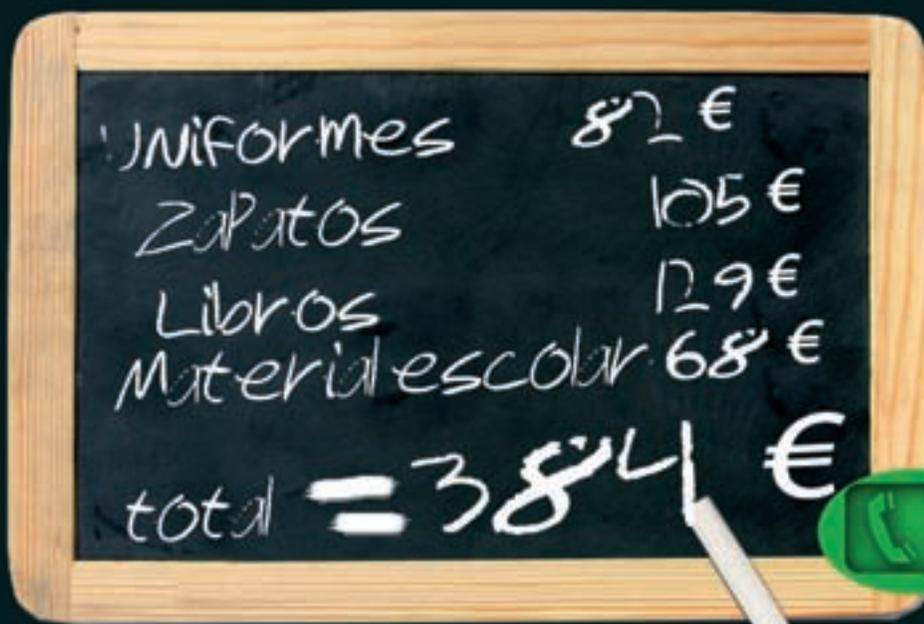 UNiformes 82 €
ZaPatos 105 €
Libros 129 €
Material escolar 68 €
total = 384 €